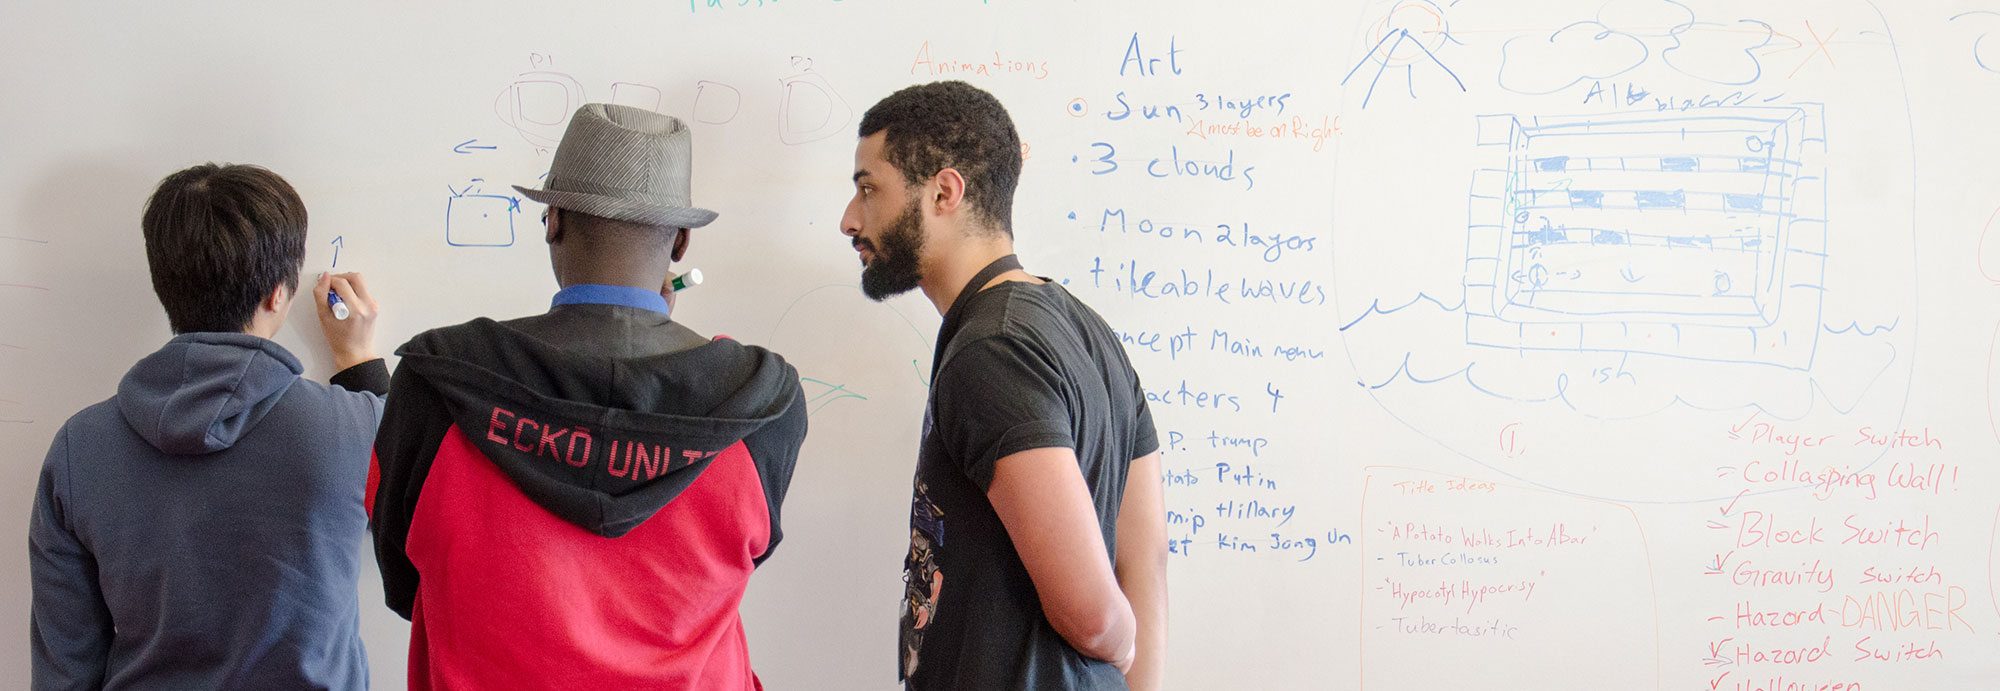 P1
P2
Animations
Art
Sun 3 layers
must be on Right.
3 clouds
Moon 2 layers
tileable waves
ncept Main menu
acters 4
.P. trump
tato Putin
Hillary
et Kim Jong Un
ECKŌ UNLT
ish
①
Title Ideas
- "A Potato Walks Into A Bar"
- Tuber Collosus
- "Hypocotyl Hypocrisy"
- Tubertasitic
Player Switch
Collasping Wall!
Block Switch
Gravity Switch
- Hazard - DANGER
Hazard Switch
Halloween